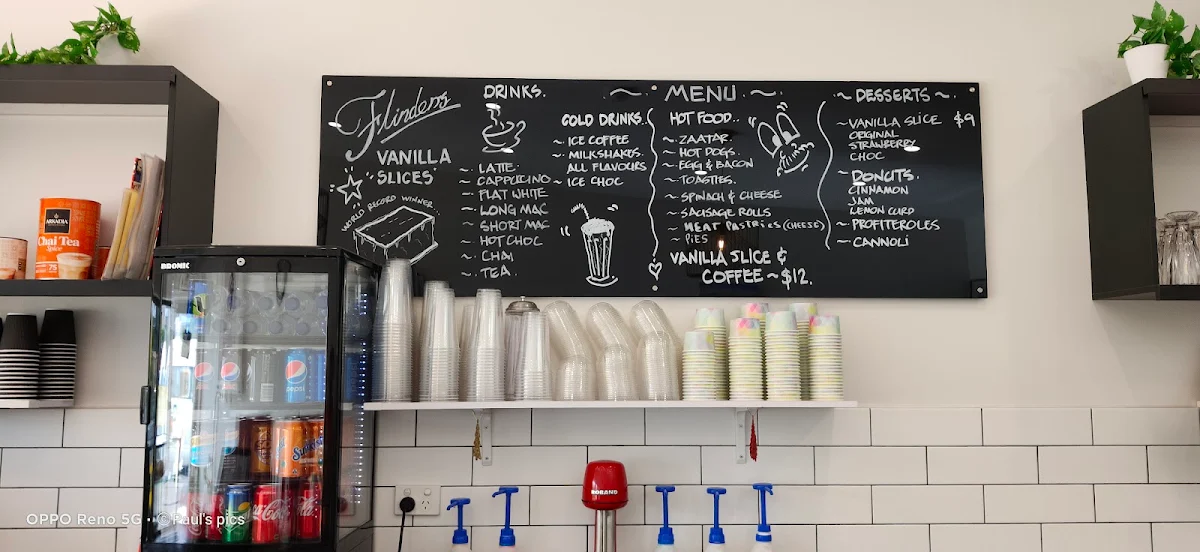 Flinders
VANILLA
SLICES
WORLD RECORD WINNER..
DRINKS.
~ LATTE.
~ CAPPUCINO
~ FLAT WHITE
~ LONG MAC
~ SHORT MAC
~ HOT CHOC
~ CHAI
~ TEA.
COLD DRINKS.
~ ICE COFFEE
~ MILKSHAKES.
ALL FLAVOURS
~ ICE CHOC
~ MENU ~
HOT FOOD..
~ ZAATAR.
~ HOT DOGS.
~ EGG & BACON
~ TOASTIES.
~ SPINACH & CHEESE
~ SAUSAGE ROLLS
~ MEAT PASTRIES (CHEESE)
~ PIES
VANILLA SLICE &
COFFEE ~ $12.
~ DESSERTS ~.
~ VANILLA SLICE $9
ORIGINAL
STRAWBERRY
CHOC
~ DONUTS.
CINNAMON
JAM
LEMON CURD
~ PROFITEROLES
~ CANNOLI
ARKADIA
Chai Tea
Spice
75
BRONIK
pepsi
Coca-Cola
RORAND
OPPO Reno 5G · © Paul's pics